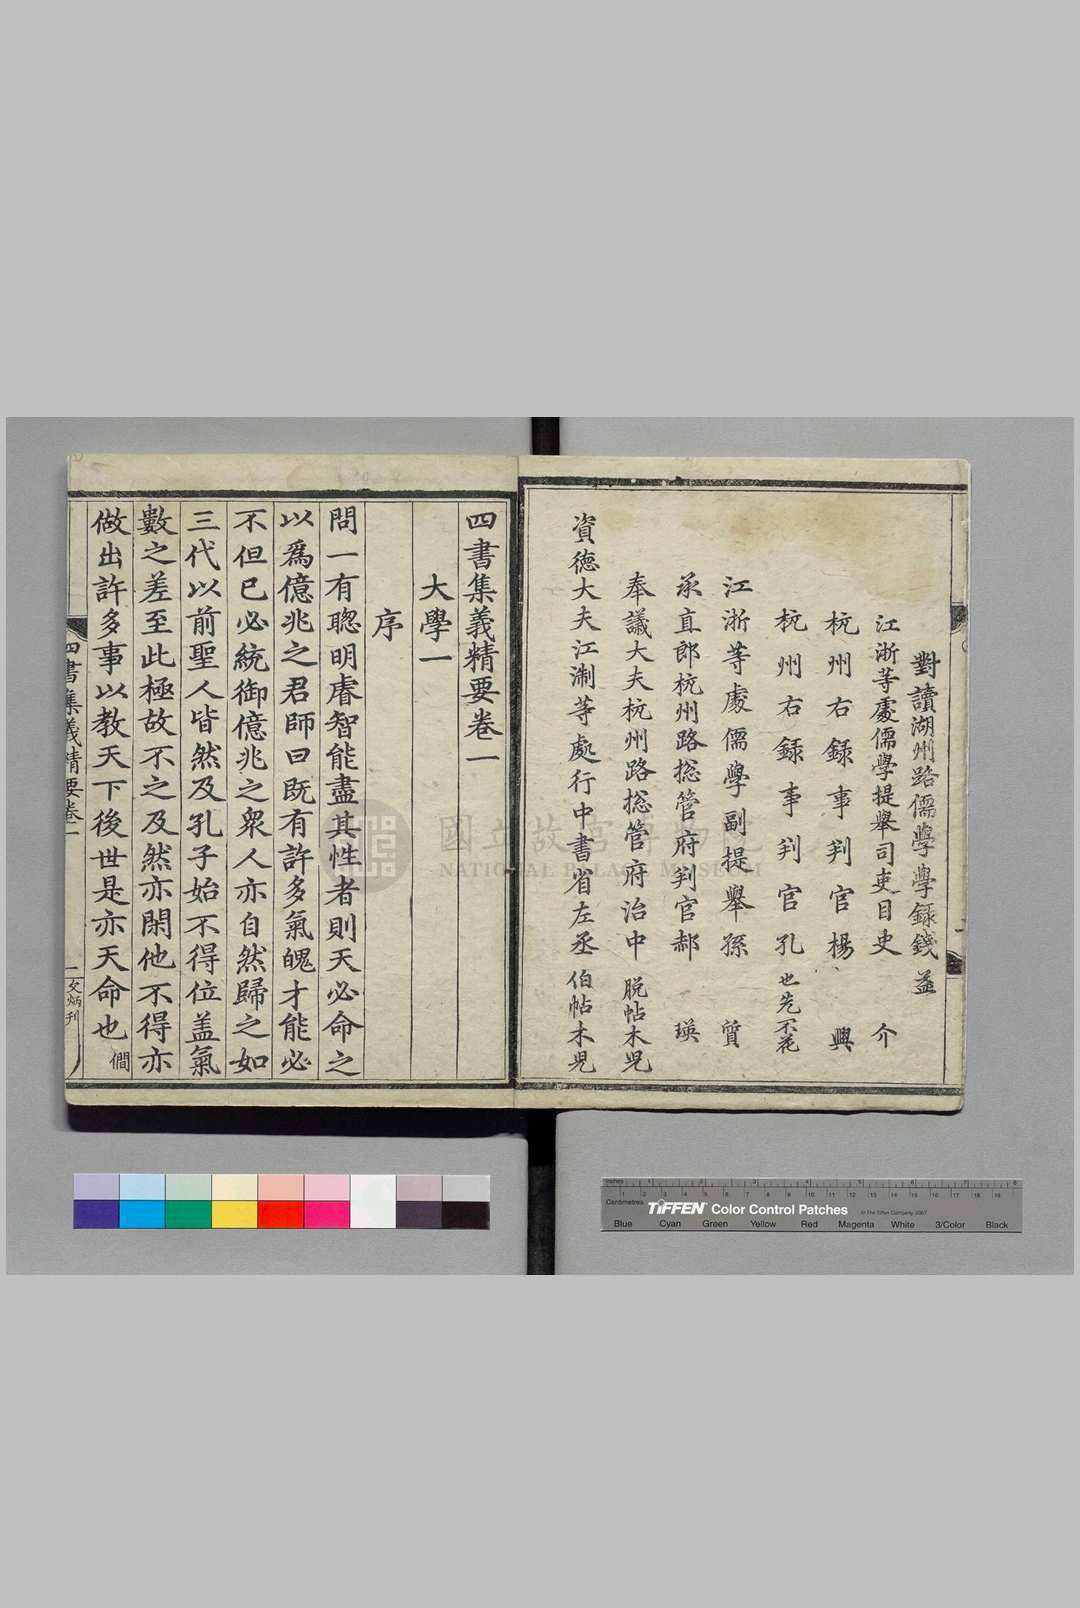 對讀湖州路儒學學録錢益
江浙等處儒學提舉司吏目史介
杭州右録事判官楊興
杭州右録事判官孔也先不花
江浙等處儒學副提舉孫質
承直郎杭州路捴管府判官郝瑛
奉議大夫杭州路捴管府治中脱帖木児
資德大夫江淛等處行中書省左丞伯帖木児
四書集義精要卷一
大學一
序
問一有聦明睿智能盡其性者則天必命之
以爲億兆之君師曰既有許多氣魄才能必
不但已必統御億兆之衆人亦自然歸之如
三代以前聖人皆然及孔子始不得位盖氣
數之差至此極故不之及然亦閑他不得亦
做出許多事以教天下後世是亦天命也 僩
四書集義精要卷一
一
文炳刊
國立故宮博物院
NATIONAL PALACE MUSEUM
Inches 1 2 3 4 5 6 7 8
Centimetres 1 2 3 4 5 6 7 8 9 10 11 12 13 14 15 16 17 18 19
TIFFEN Color Control Patches © The Tiffen Company, 2007
Blue Cyan Green Yellow Red Magenta White 3/Color Black